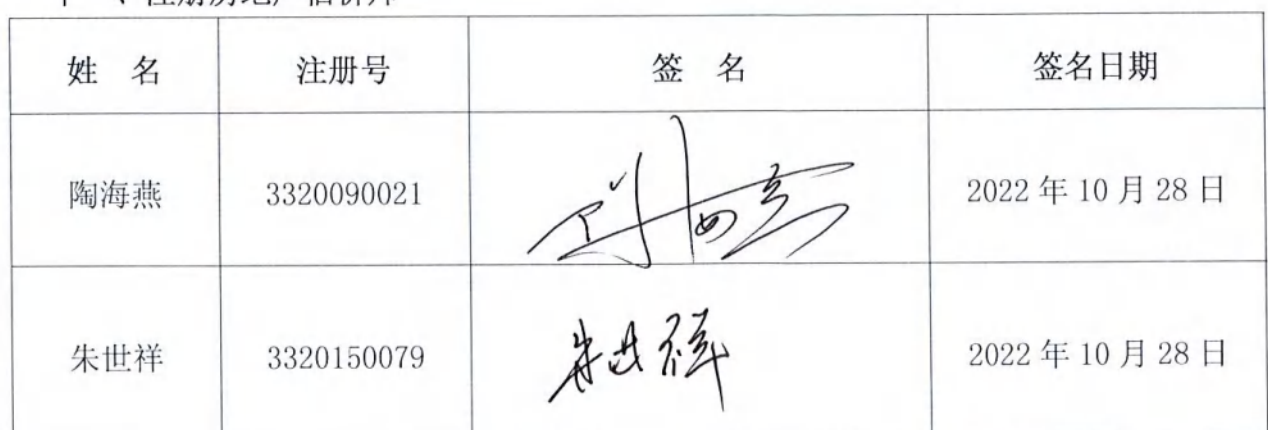 注册房地产估价师
姓 名 注册号 签 名 签名日期
陶海燕 3320090021 2022年10月28日
朱世祥 3320150079 朱世祥 2022年10月28日